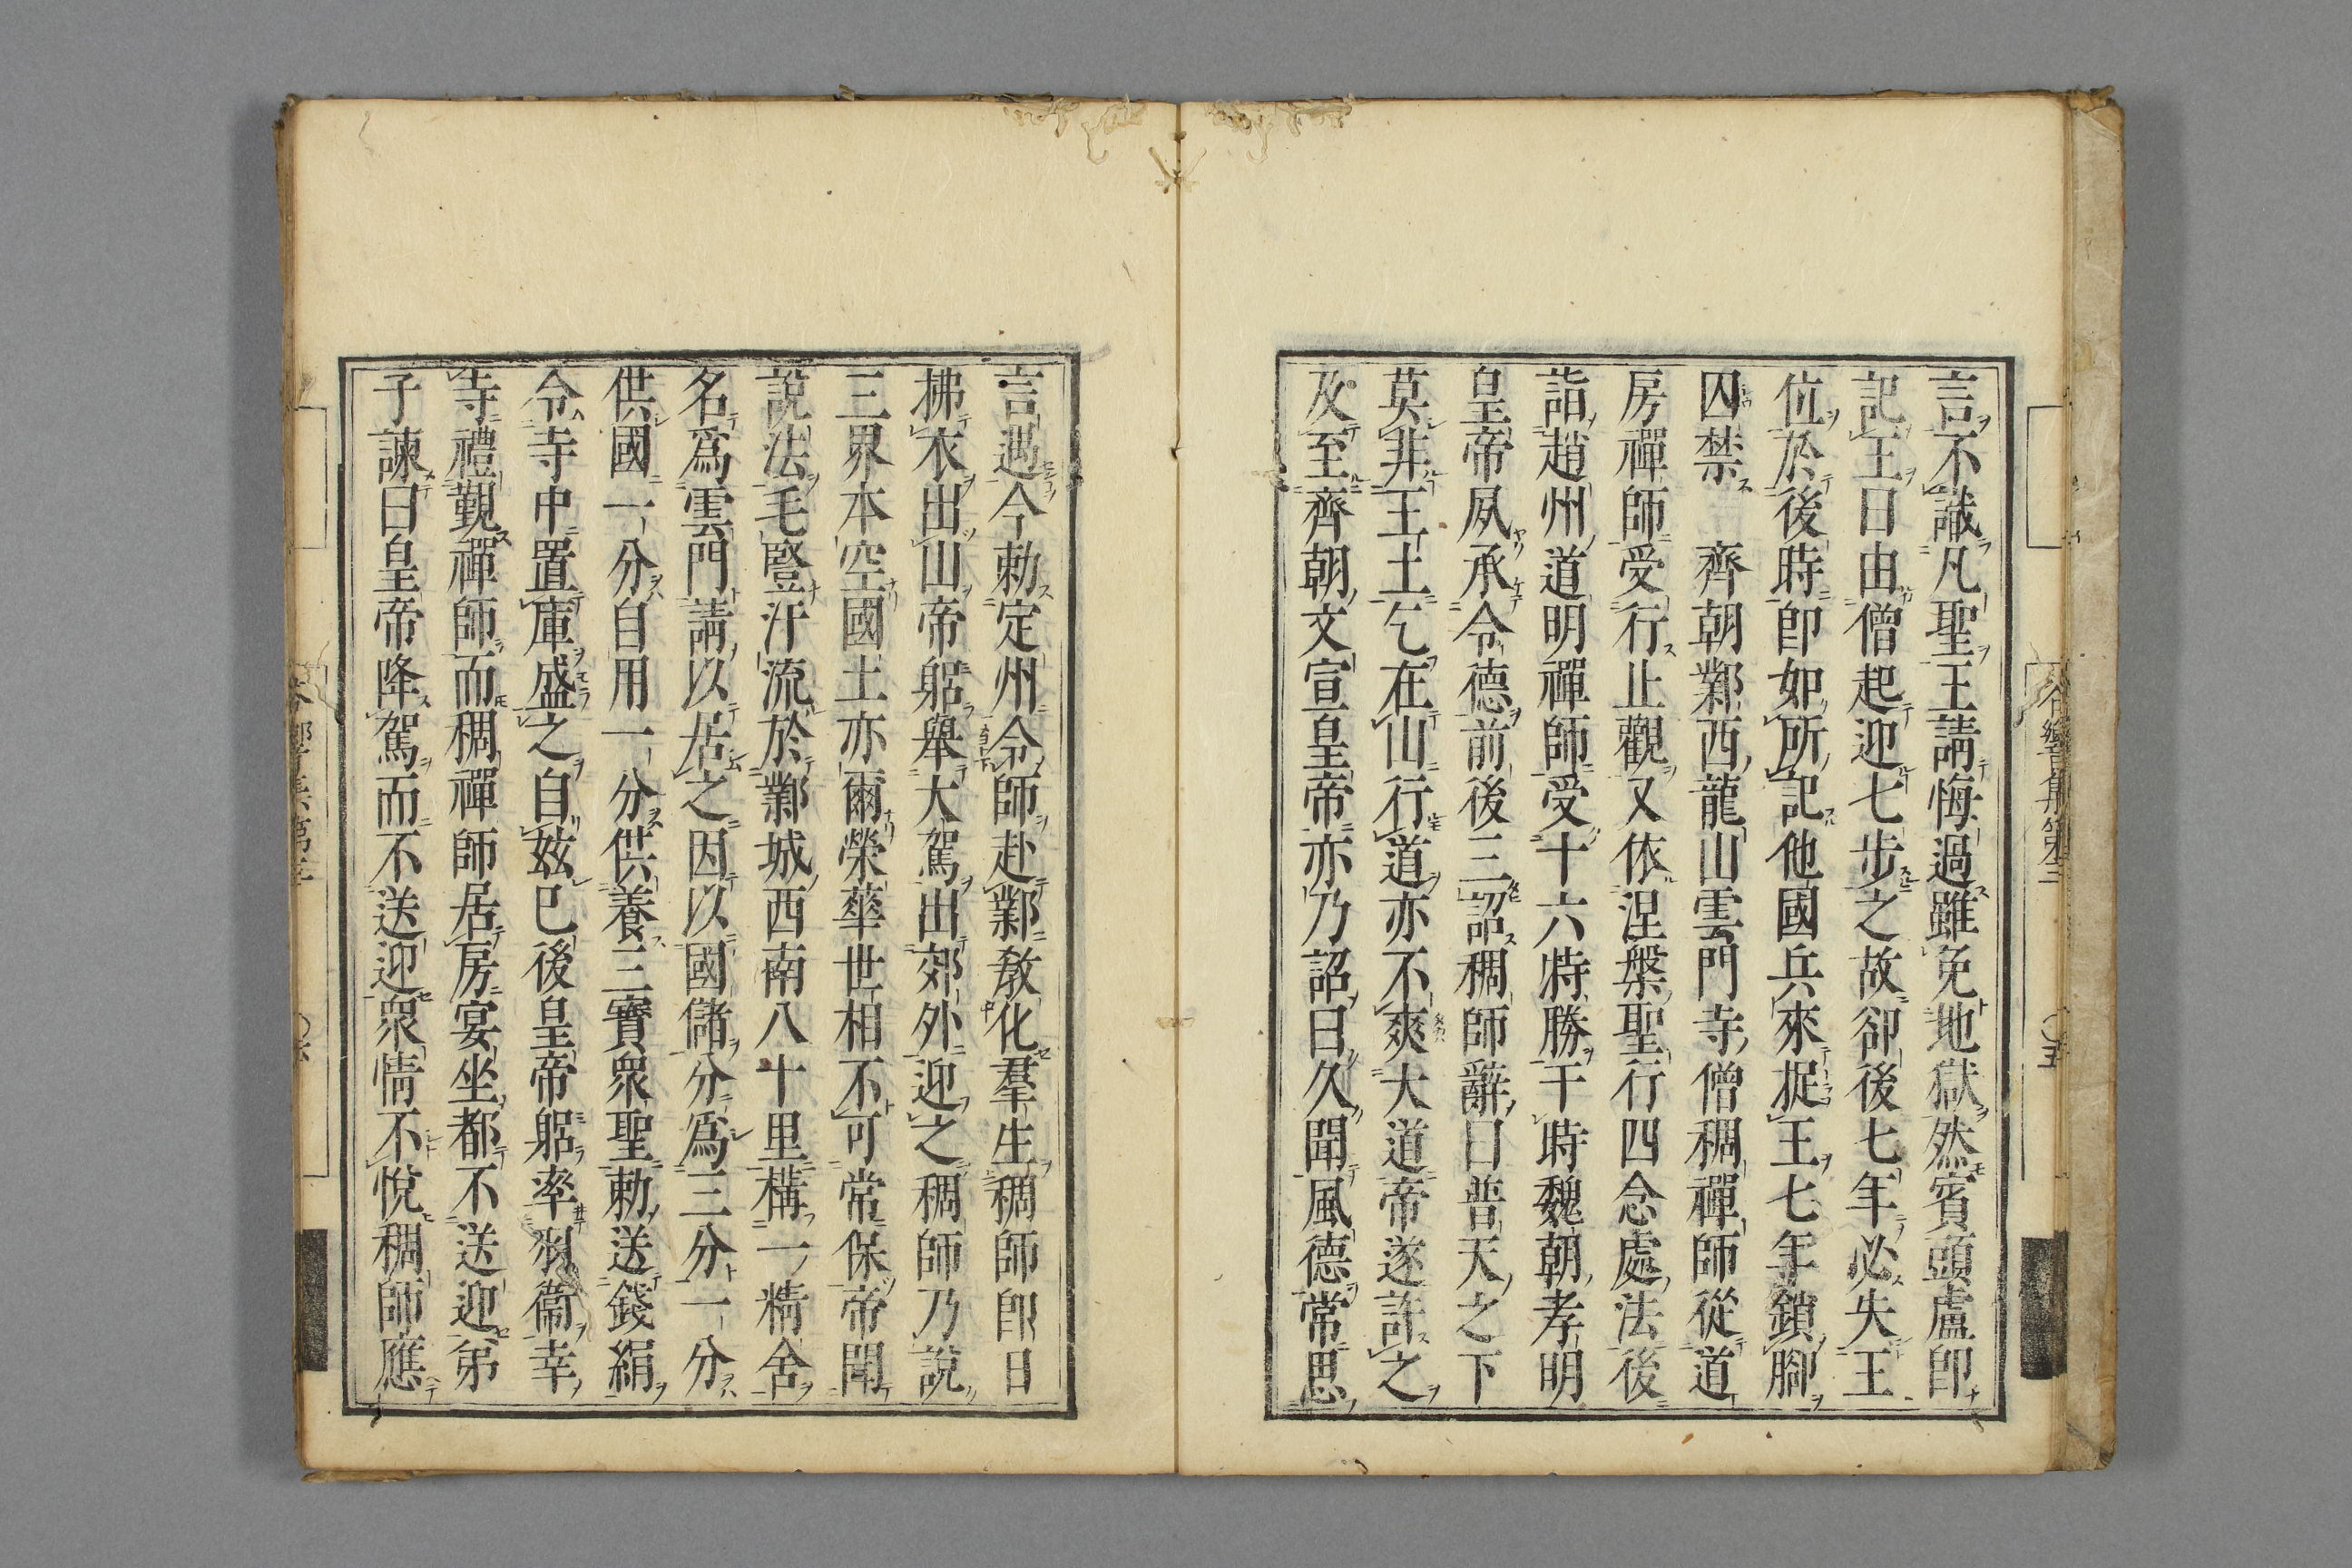 言不識凡聖王請悔過雖免地獄然賓頭盧即
記王曰由僧起迎七步之故卻後七年必失王
位於後時即如所記他國兵來捉王七年鎖腳
囚禁 齊朝鄴西龍山雲門寺僧稠禪師從道
房禪師受行止觀又依涅槃聖行四念處法後
詣趙州道明禪師受十六特勝于時魏朝孝明
皇帝夙承令德前後三詔稠師辭曰普天之下
莫非王土乞在山行道亦不爽大道帝遂許之
及至齊朝文宣皇帝亦乃詔曰久聞風德常思
言遇今勅定州令師赴鄴教化羣生稠師即日
拂衣出山帝躬舉大駕出郊外迎之稠師乃說
三界本空國土亦爾榮華世相不可常保帝聞
說法毛豎汗流於鄴城西南八十里構一精舍
名爲雲門請以居之因以國儲分爲三分一分
供國一分自用一分供養三寶衆聖勅送錢絹
令寺中置庫盛之自玆已後皇帝躬率羽衞幸
寺禮覲禪師而稠禪師居房宴坐都不送迎弟
子諫曰皇帝降駕而不送迎衆情不悅稠師應